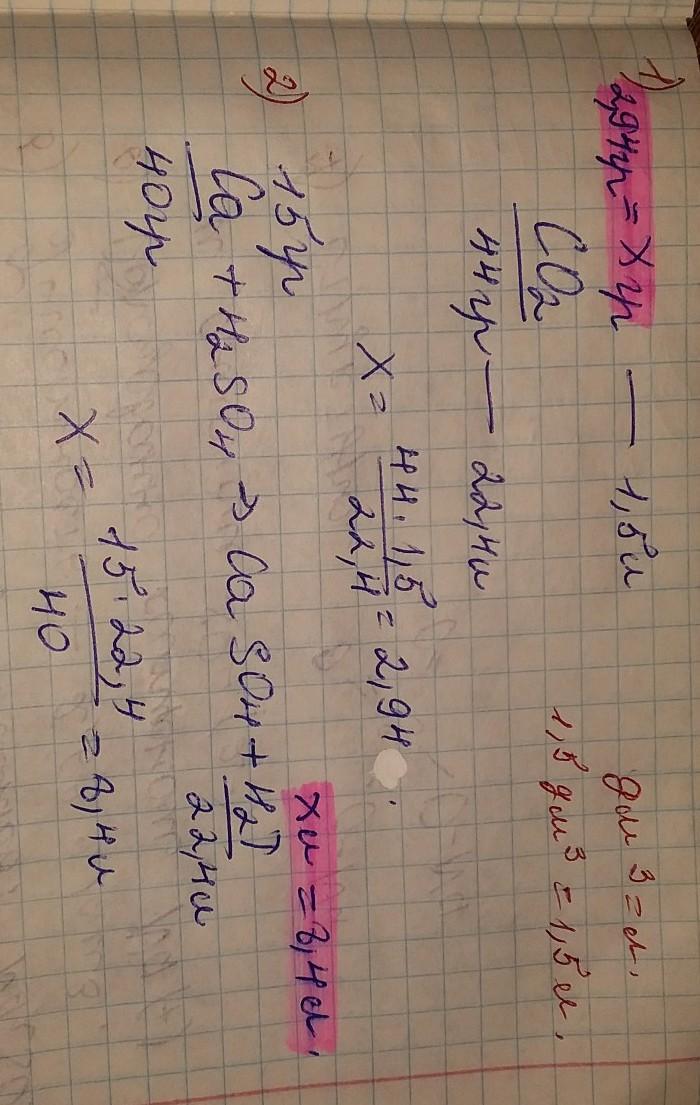 1) 2,94гр = X гр — 1,5л
дм³ = л.
CO₂
1,5 дм³ = 1,5 л.
44гр — 22,4л
X = 44 · 1,5 / 22,4 = 2,94
2) 15гр
Xл = 8,4л.
Ca + H₂SO₄ → CaSO₄ + H₂↑
40гр
22,4л
X = 15 · 22,4 / 40 = 8,4л